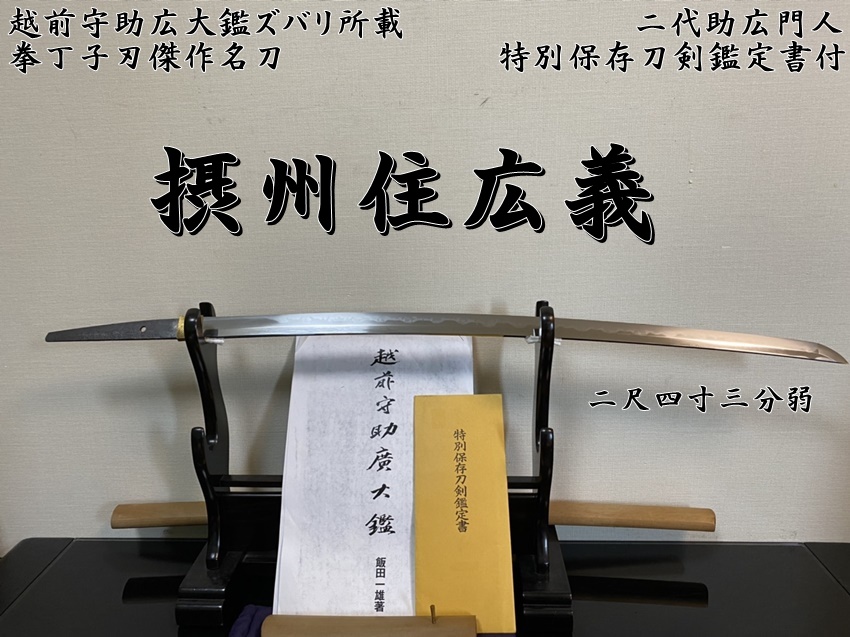 越前守助広大鑑ズバリ所載
拳丁子刃傑作名刀
二代助広門人
特別保存刀剣鑑定書付
摂州住広義
二尺四寸三分弱
越前守助廣大鑑
飯田一雄著
特別保存刀剣鑑定書